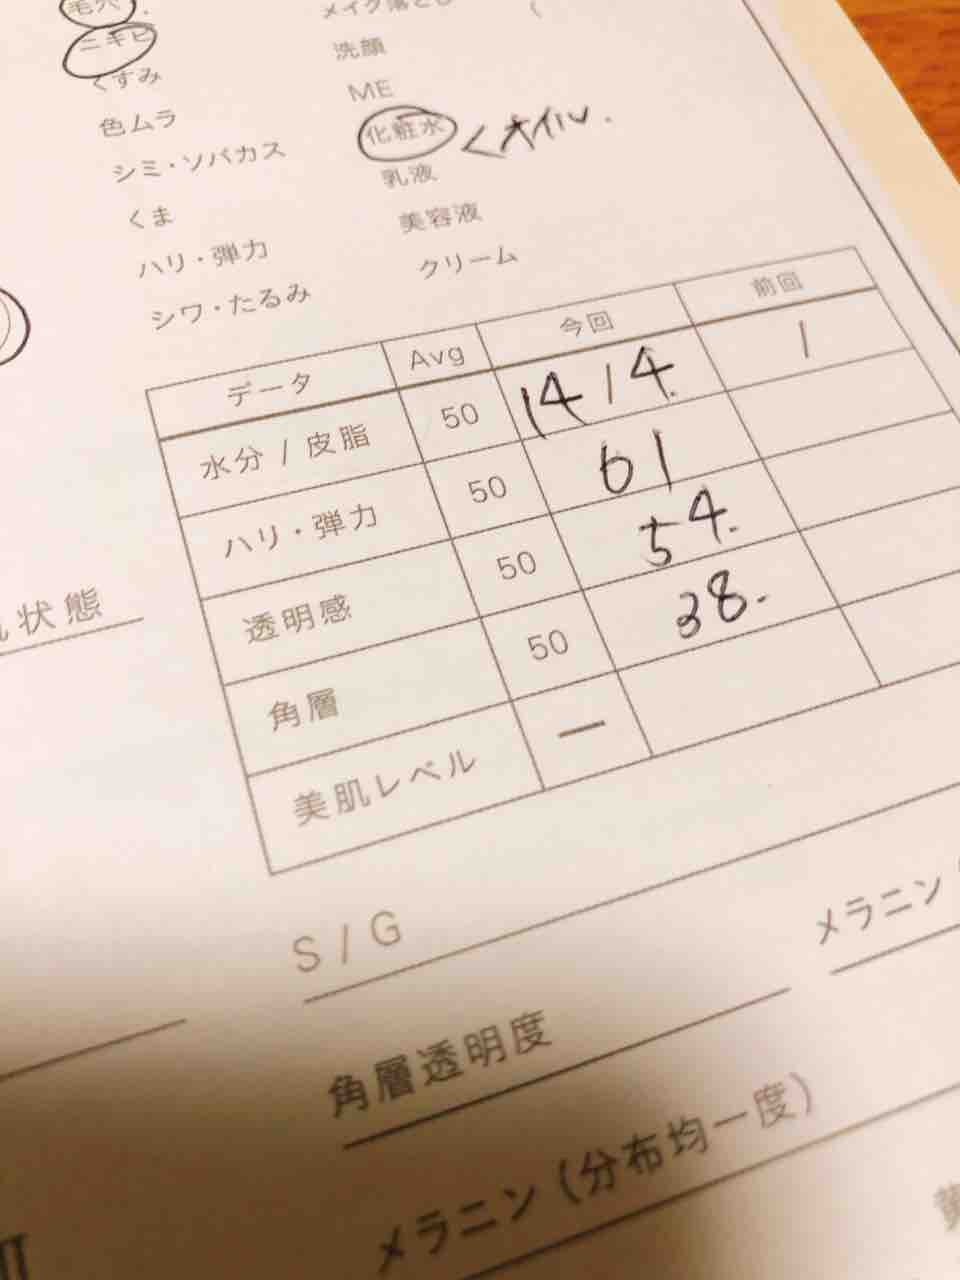 毛穴
ニキビ
くすみ
色ムラ
シミ・ソバカス
くま
ハリ・弾力
シワ・たるみ
メイク落とし
洗顔
ME
化粧水 <オイル.
乳液
美容液
クリーム
データ Avg 今回 前回
水分 / 皮脂 50 14 / 4. /
ハリ・弾力 50 61
透明感 50 54.
角層 50 38.
美肌レベル —
状態
S / G
メラニン
角層透明度
メラニン (分布均一度)